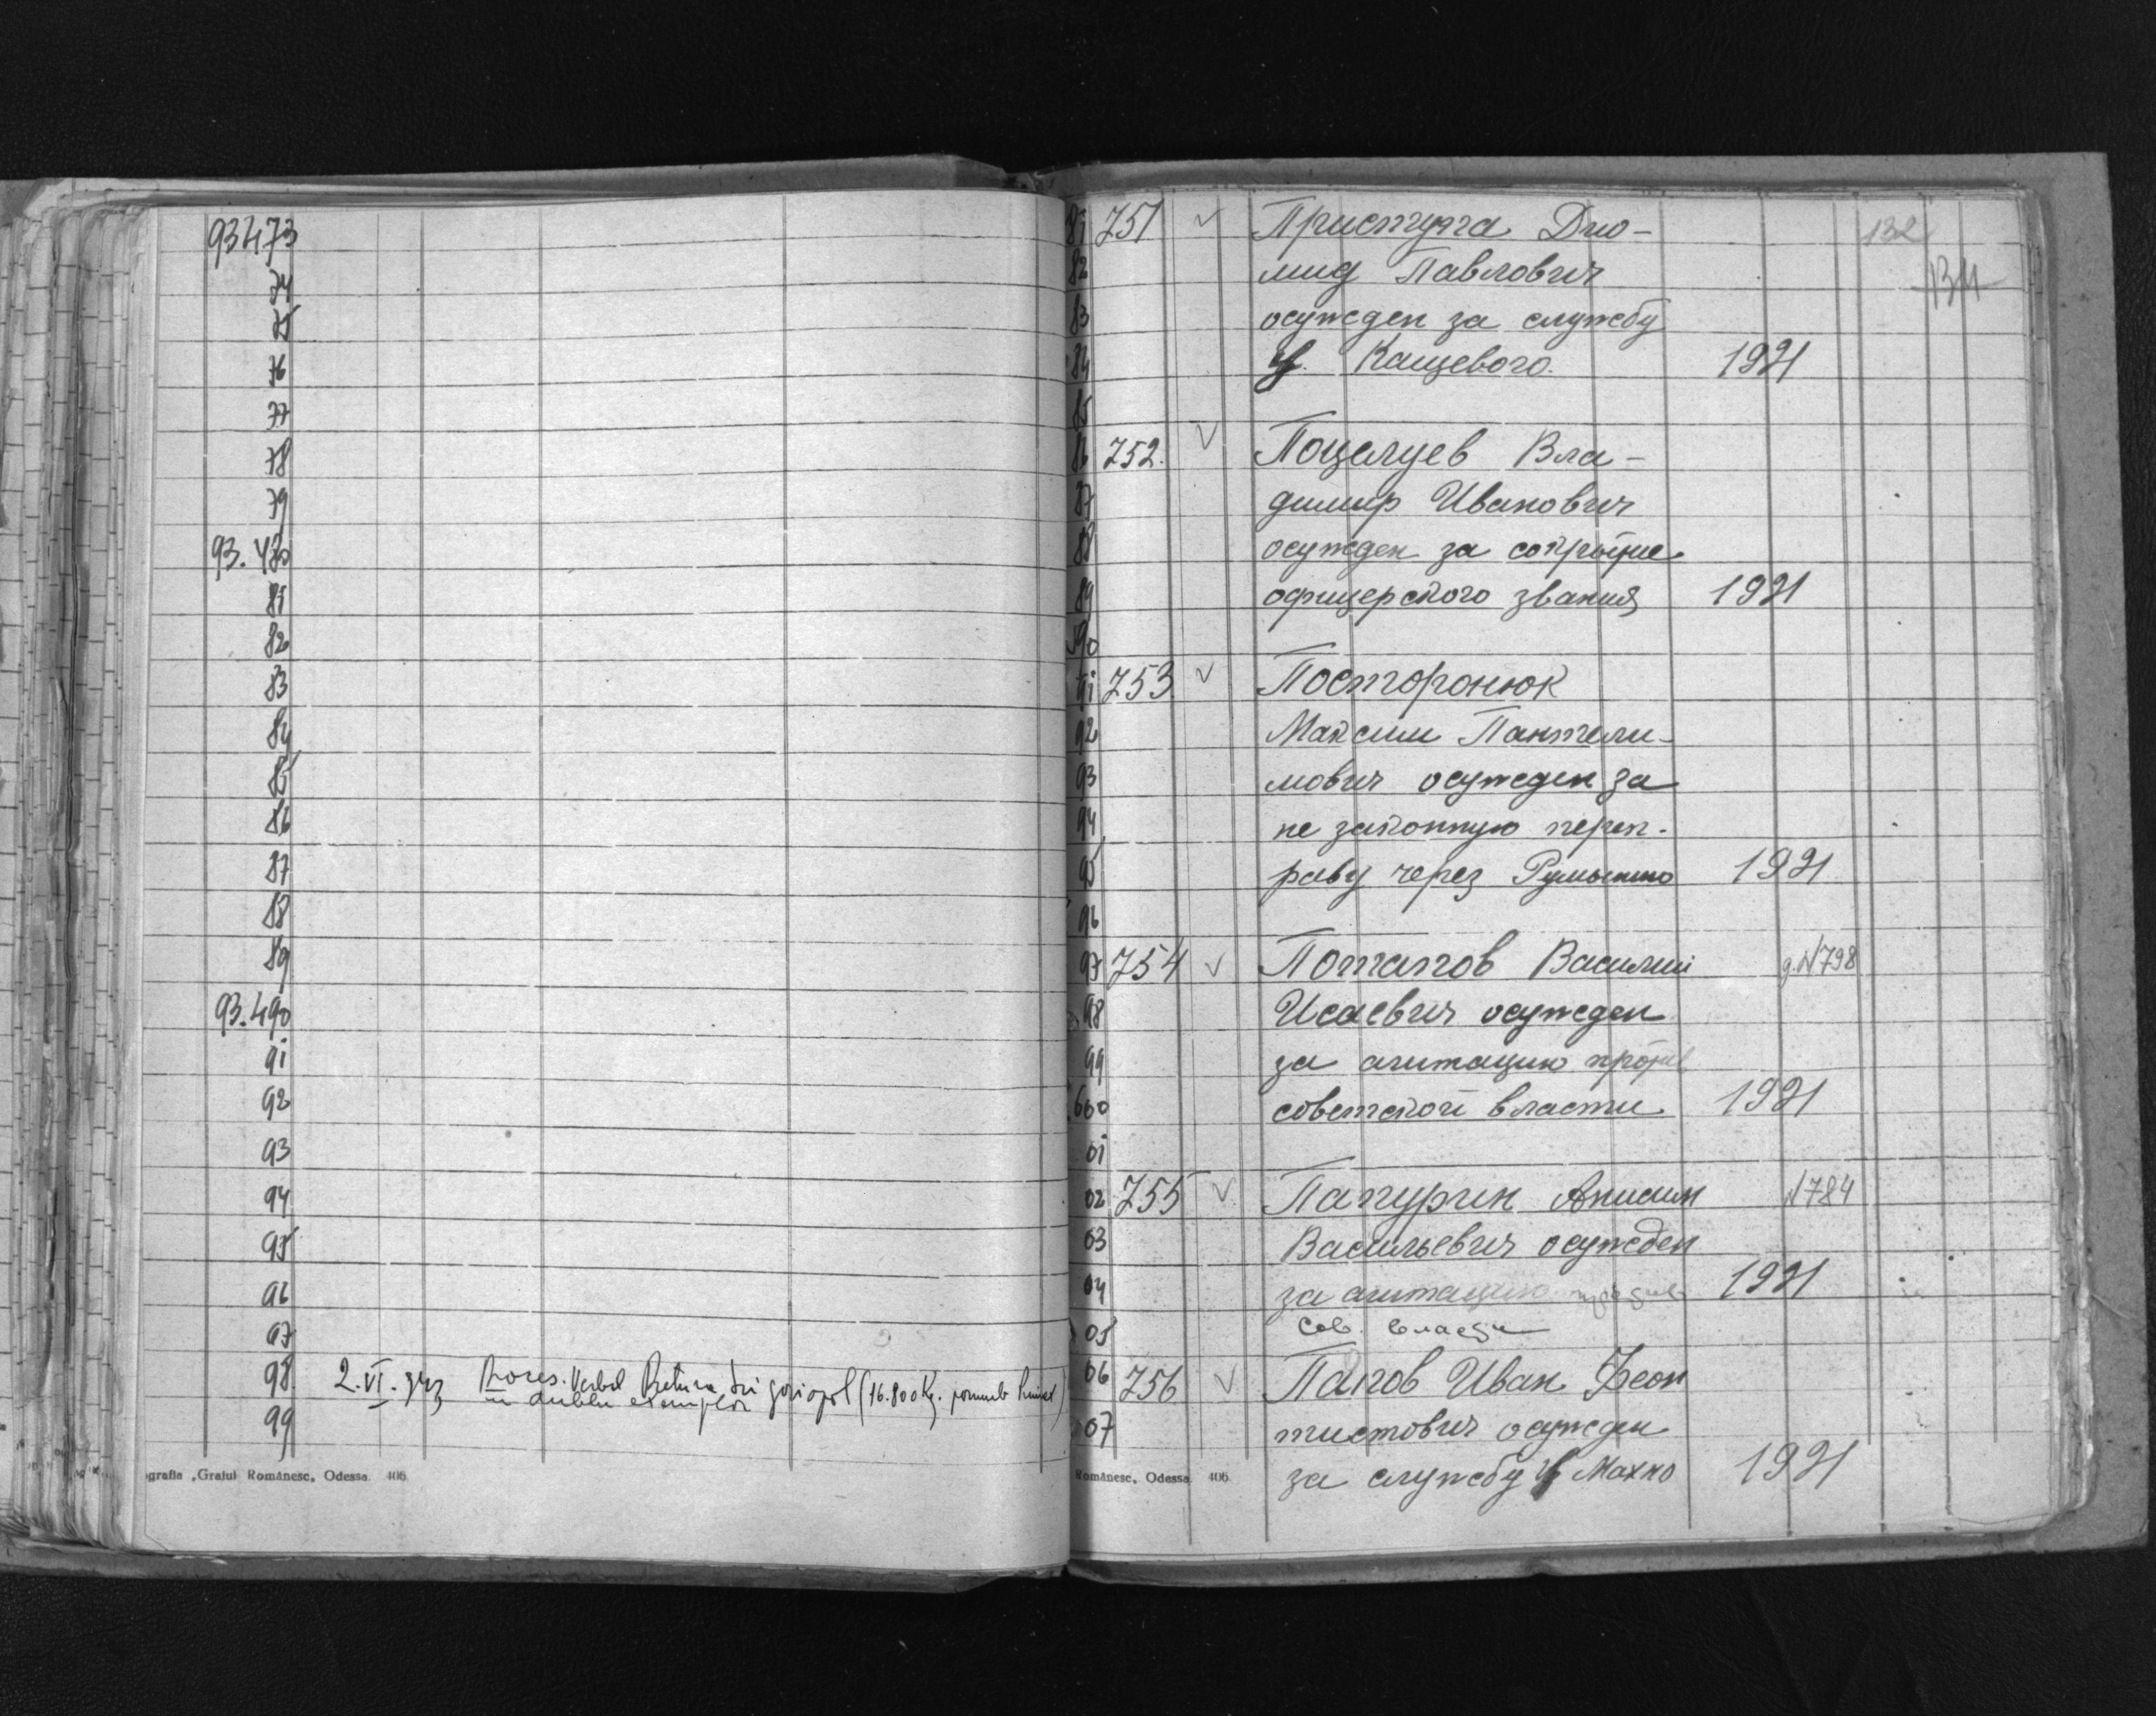 93473
74
75
76
77
78
79
93.480
81
82
83
84
85
86
87
88
89
93.490
91
92
93
94
95
96
97
98 2.VI.943 Proces-Verbal Pretura Grigoriopol (16.800 Kg.
in dublu exemplar
99
ografia „Graiul Românesc„ Odessa 406
132
81 751 √ Приступа Дио-
82 мид Павлович
83 осужден за службу
84 у. Кащевого. 1921
85
86 752. √ Поцелуев Вла-
87 димир Иванович
88 осужден за сокрытие
89 офицерского звания 1921
90
91 753 √ Посторонюк
92 Максим Пантели-
93 мович осужден за
94 не законную переп-
95 раву через Румынию 1921
96
97 754 √ Потапов Василий д.№798
98 Исаевич осужден
99 за агитацию против
600 советской власти 1921
01
02 755 √ Папурин Анисим №784
03 Васильевич осужден
04 за агитацию против 1921
05 Сов. власти
06 756 √ Папов Иван Феок
07 тистович осужден
за службу у Махно 1921
Românesc„ Odessa 406